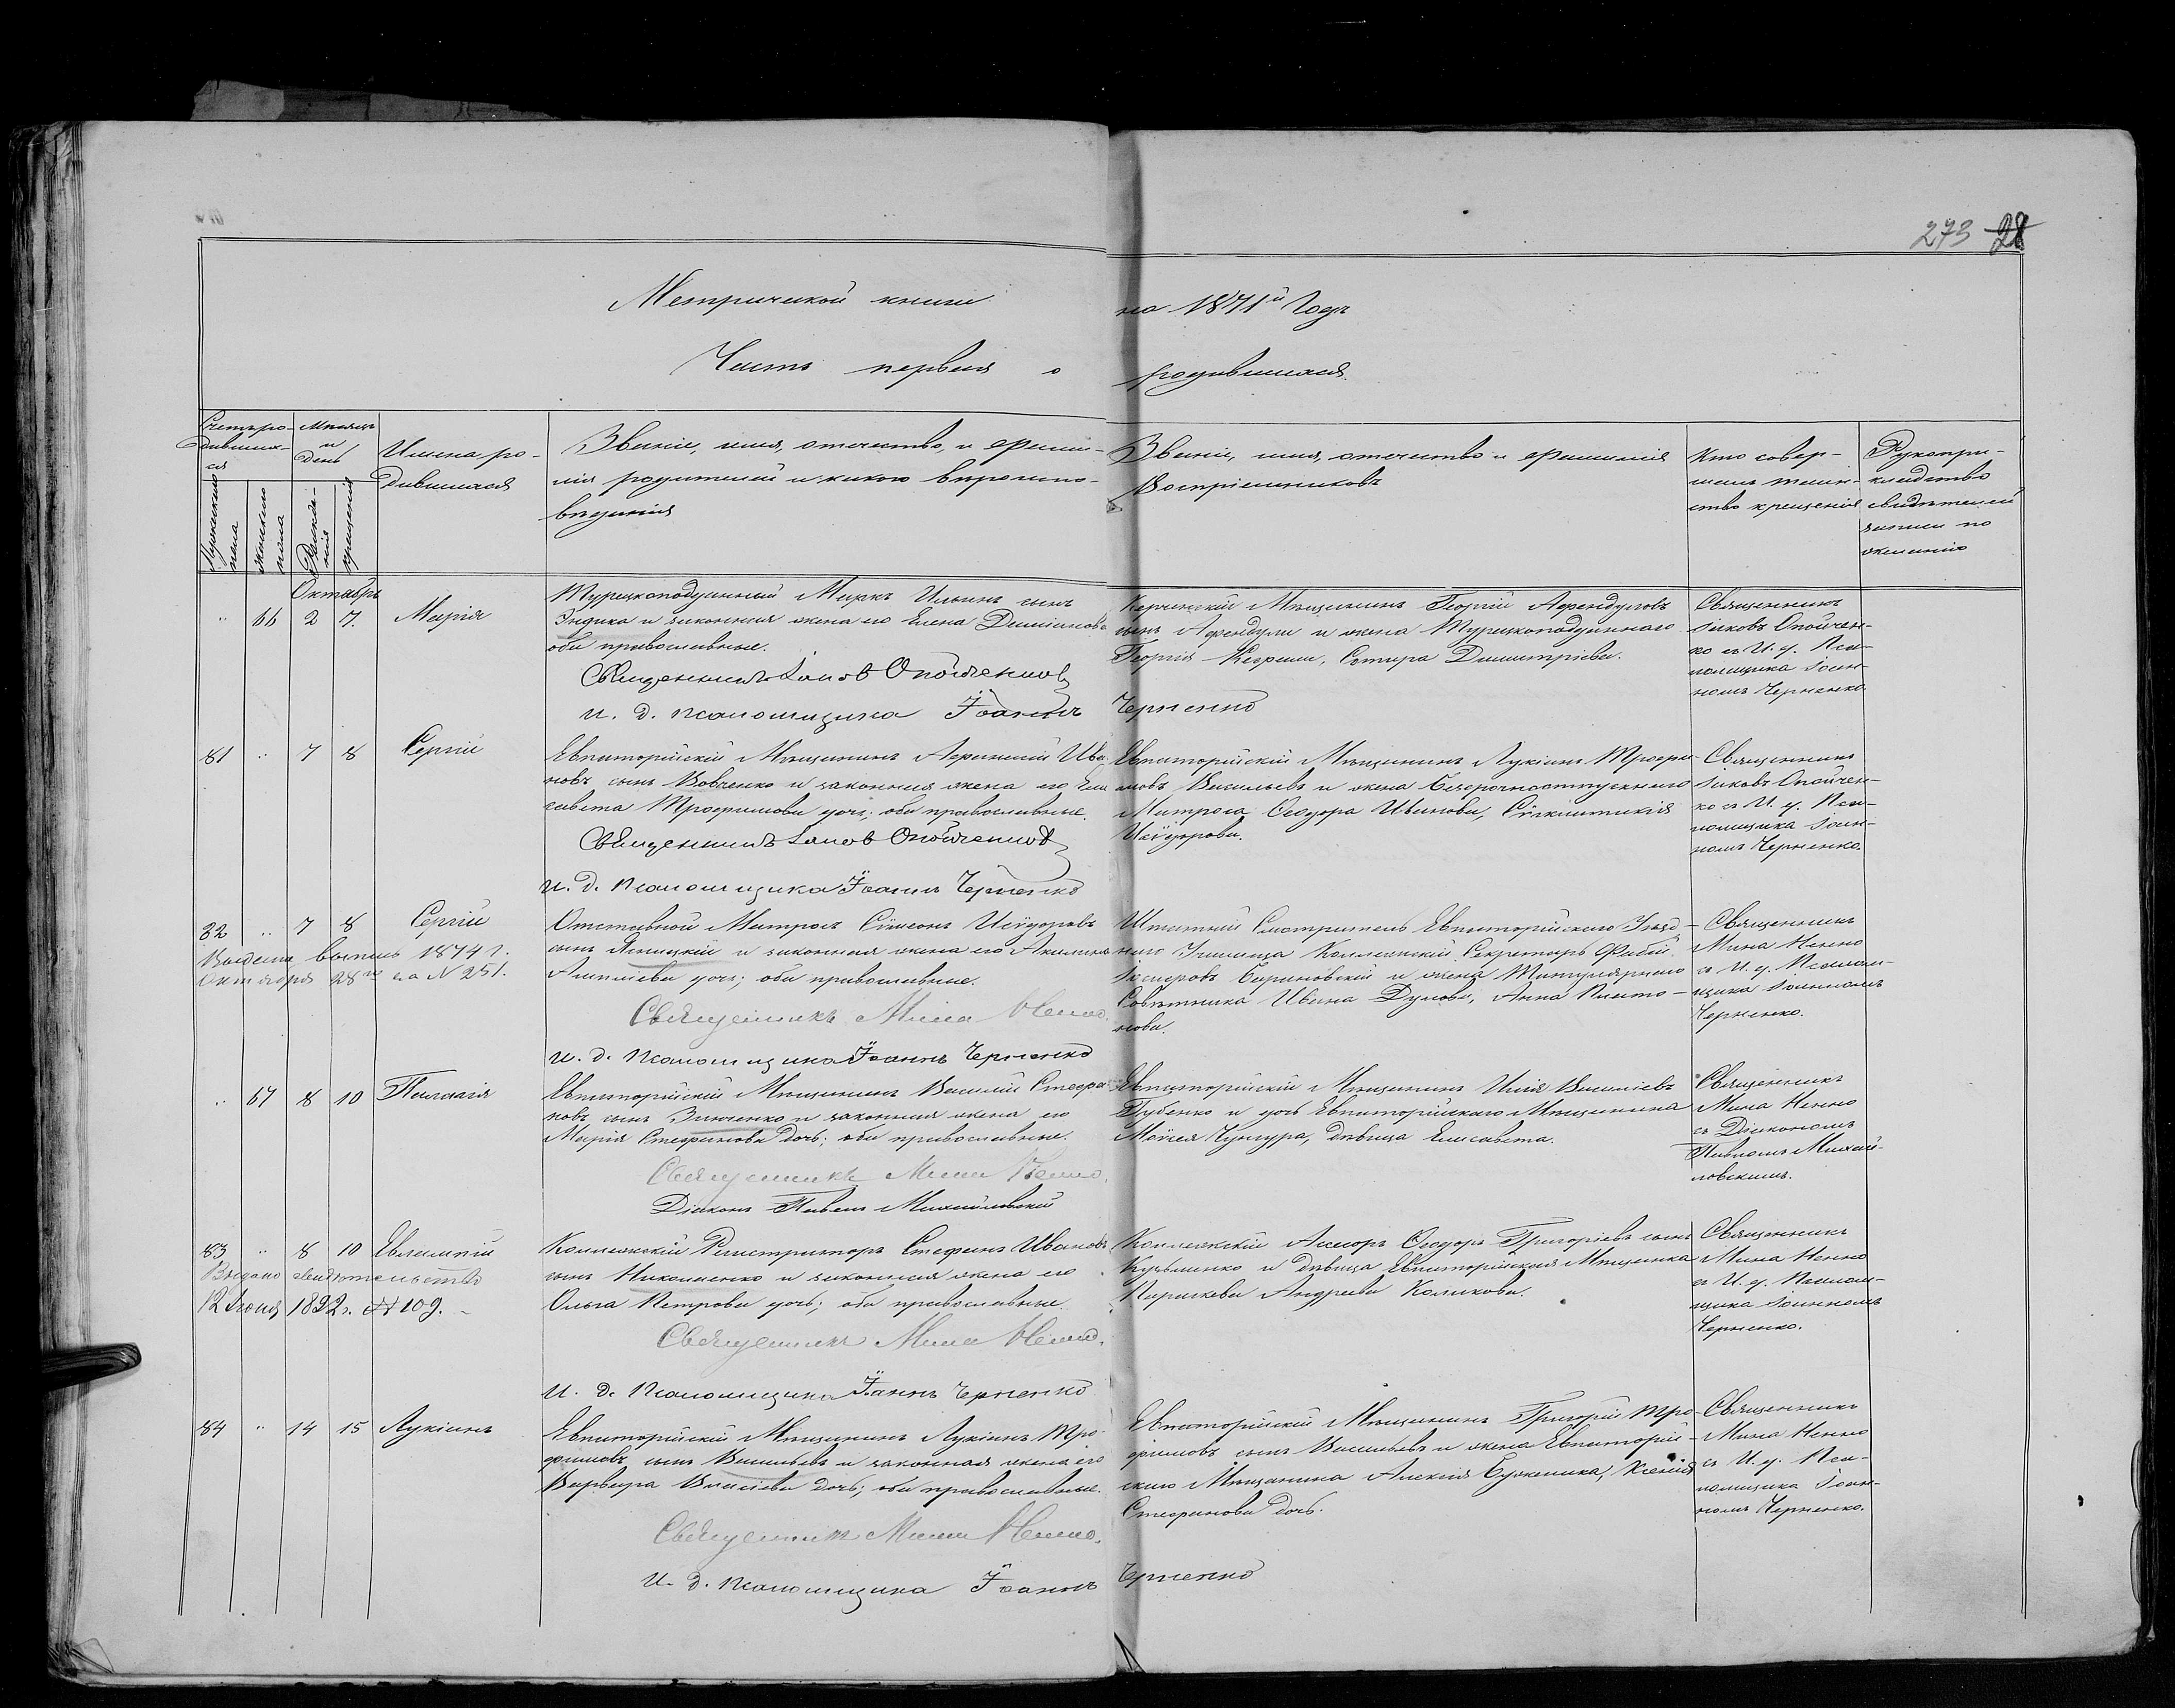 273 28
Метрической книги на 1871й Годъ
Часть первая о родившихся.
Счетъ ро-
дивших-
ся
Мужескаго
пола
женскаго
пола
Мѣсяцъ
и
день
Рожде-
нія
крещенія
Имена ро-
дившихся
Званіе, имя, отечество, и фами-
лія родителей и какого вѣроиспо-
вѣданія
Званіе, имя, отечество и фамилія
Воспріемниковъ
Кто совер-
шалъ таин-
ство крещенія
Рукопри-
кладство
свидѣтелей
записи по
желанію
Октябрь
" 66 2 7. Марія
Турецкоподданный Маркъ Ильинъ сынъ
Индика и законная жена его Елена Даміанова
оба православные.
Священникъ Іаковъ Опойченко
и. д. псаломщика Іоаннъ Черненко
Керченскій Мѣщанинъ Георгій Афендуловъ
сынъ Афендули и жена Турецкоподданнаго
Георгія Кефали, Сотира Димитріева.
Священникъ
Іаковъ Опойчен-
ко съ И. д. Пса-
ломщика Іоан-
номъ Черненко.
81 " 7 8 Сергій
Евпаторійскій Мѣщанинъ Афанасій Ива-
новъ сынъ Вовченко и законная жена его Ели
савета Трофимова дочь; оба православные.
Священникъ Іаковъ Опойченко
и. д. псаломщика Іоаннъ Черненко
Евпаторійскій Мѣщанинъ Лукіанъ Трофи-
мовъ Васильевъ и жена безсрочноотпускнаго
Матроса Ѳеодора Иванова,
Исидорова.
Священникъ
Іаковъ Опойчен-
ко съ И. д. Пса-
ломщика Іоан-
номъ Черненко.
82 " 7 8 Сергій
Выдана выпись 1874 г.
Октября 28го за N 251.
Отставной Матросъ Сѵмеонъ Исидоровъ
сынъ и законная жена его Акилина
дочь; оба православные.
Священникъ Мина Ненно.
и. д. псаломщика Іоаннъ Черненко
Штатный Смотритель Евпаторійскаго Уѣзд-
наго Училища Коллежскій Секретарь Фабій
Барановскій и жена Титулярнаго
Совѣтника Ивана Дулова, Анна Плато-
нова.
Священникъ
Мина Ненно
съ И. д. Псалом-
щика Іоанномъ
Черненко.
" 67 8 10 Пелагія
Евпаторійскій Мѣщанинъ Василій Стефа-
новъ сынъ Зинченко и законная жена его
Марія Стефанова дочь; оба православные.
Священникъ Мина Ненно.
Діаконъ Павелъ Михайловскій
Евпаторійскій Мѣщанинъ Илія Василіевъ
Губенко и дочь Евпаторійскаго Мѣщанина
Моѵсея Чунгура, дѣвица Елисавета.
Священникъ
Мина Ненно
съ Діакономъ
Павломъ Михай-
ловскимъ.
83 " 8 10 Евлампій
Выдано свидѣтельство
12 Іюня 1892 г. № 109.
Коллежскій Регистраторъ Стефанъ Ивановъ
сынъ Николаенко и законная жена его
Ольга Петрова дочь; оба православные.
Священникъ Мина Ненно.
и. д. псаломщика Іоаннъ Черненко
Коллежскій Ассесоръ Ѳеодоръ Григоріевъ сынъ
Кузьменко и дѣвица Евпаторійская Мѣщанка
Параскева Андреева Коликова.
Священникъ
Мина Ненно
съ И. д. Псалом-
щика Іоанномъ
Черненко.
84 " 14 15 Лукіанъ
Евпаторійскій Мѣщанинъ Лукіанъ Тро-
фимовъ сынъ Васильевъ и законная жена его
Варвара Власіева дочь; оба православные.
Священникъ Мина Ненно.
и. д. псаломщика Іоаннъ Черненко
Евпаторійскій Мѣщанинъ Григорій Тро-
фимовъ сынъ Васильевъ и жена Евпаторій-
скаго Мѣщанина Алексія Ксенія
Стефанова дочь.
Священникъ
Мина Ненно
съ И. д. Пса-
ломщика Іоан-
номъ Черненко.